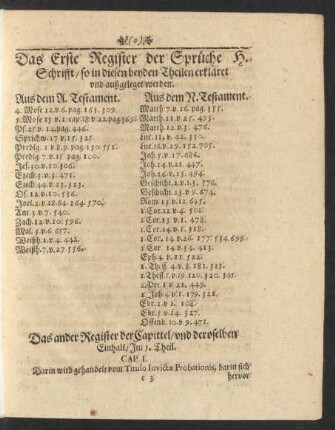 Das Erste Register der Sprüche H.
Schrifft/ so in diesen beyden Theilen erkläret
vnd außgeleget werden.
Aus dem A. Testament.
4. Mose 12.v.6. pag. 163. 309.
Ps. 25.v.14. pag. 446.
Sprichw. 17.v.15. 325.
Predig. 1.v.8.9. pag. 130. 551.
Predig 7.v.15. pag. 100.
Jes. 30.v.10. 306.
Ezech. 3.v.3. 471.
Ezech. 44.v.23. 323.
Os. 12.v.10. 336.
Joel. 2.v.28. 84. 264. 570.
Am. 3.v.7. 540.
Zach. 12.v.10. 596.
Mal. 3.v.6. 657.
Weißh. 1.v.4. 442.
Weißh. 7.v.27. 556.
Aus dem N. Testament.
Matth. 7.v.16. pag. 155.
Matth. 11.v.25. 493.
Matth. 12.v.3. 476.
Luc. 11.v.42. 330.
Luc. 16.v.29. 152. 705.
Joh. 5.v.17. 686.
Joh. 14.v.21. 447.
Joh. 16.v.13. 494.
Geschicht. 2.v.13. 576.
Geschicht. 23.v.9. 674.
Rom. 13.v.12. 625.
1. Cor. 12.v.4. 502.
1. Cor. 13.v.1. 478.
1. Cor. 14.v.3. 318.
1. Cor. 14.v.26. 177. 534. 699.
1. Cor. 14.v.34. 423.
Eph. 4.v.11. 522.
1. Thess. 4.v.8. 181. 323.
1. Thess. 5.v.19. 120. 320. 391.
2. Pet. 1.v.21. 449.
1. Joh. 4.v.1. 179. 322.
Ebr. 1.v.1. 108.
Ebr. 5.v.14. 327.
Offenb. 10.v.9. 471.
Das ander Register der Capittel/ vnd deroselben
Einhalt/ Im 1. Theil.
CAP. I.
Darin wird gehandelt vom Titulo Invictæ Probationis, darin sich
c 3 hervor